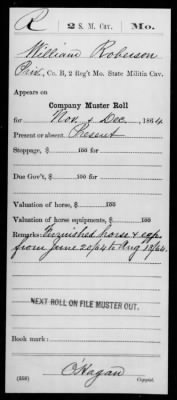 R | 2 S. M. Cav. | Mo.
William Roberson
Priv., Co. B, 2 Reg't Mo. State Militia Cav.
Appears on
Company Muster Roll
for Nov & Dec, 1864
Present or absent Present
Stoppage, $ 100 for
Due Gov't, $ 100 for
Valuation of horse, $ 100
Valuation of horse equipments, $ 100
Remarks: Furnished horse & eqp.
from June 20/64 to Aug 19/64.
NEXT ROLL ON FILE MUSTER OUT.
Book mark:
(358) O'Hagan
Copyist.